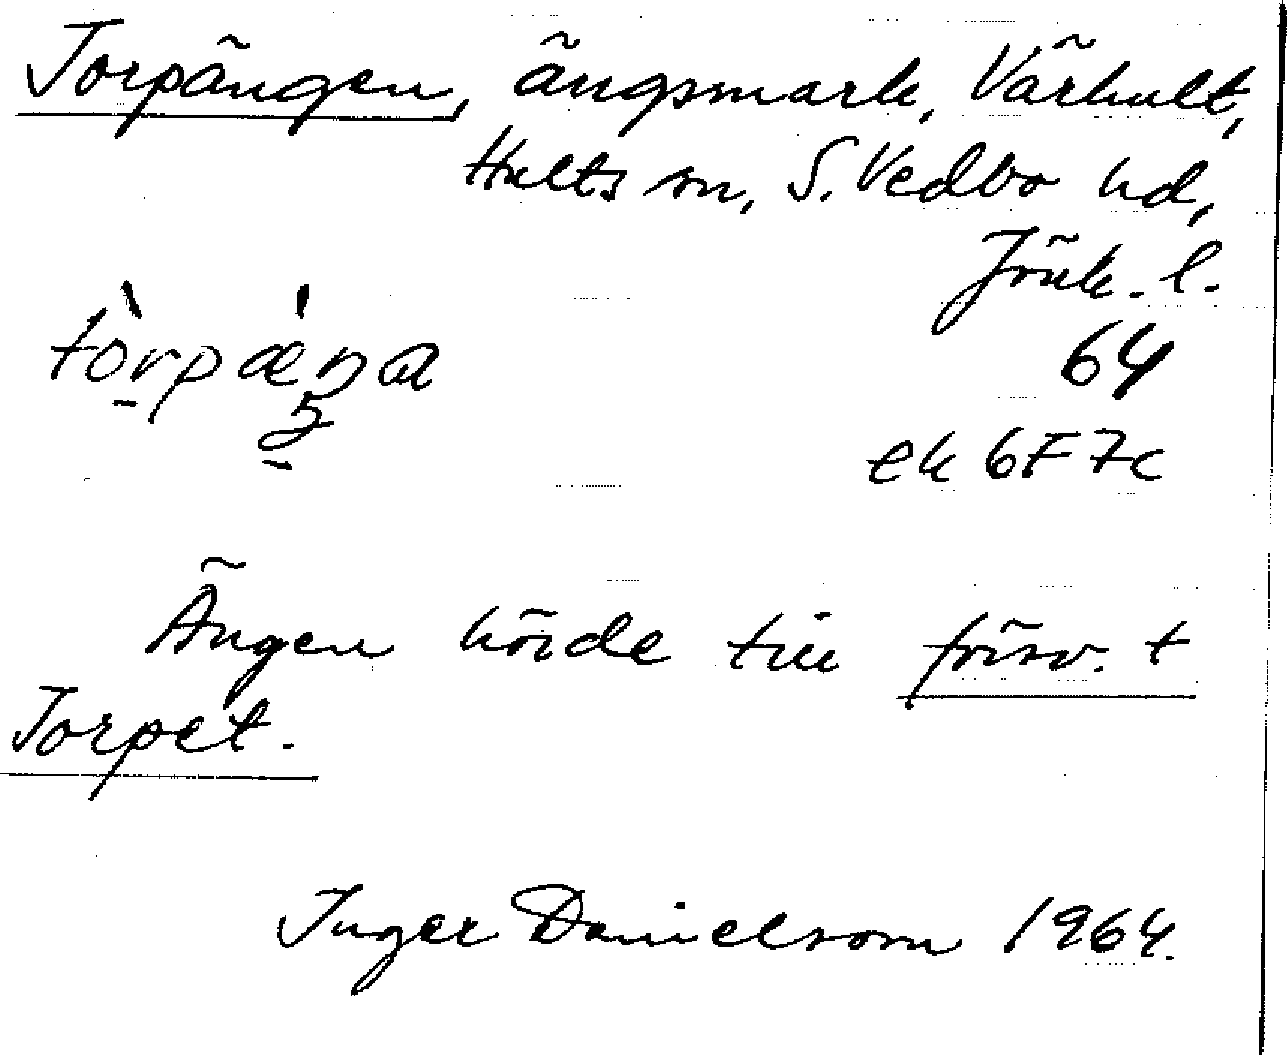 Torpängen, ängsmark, Värhult,
Hults sn, S. Vedbo hd,
Jönk. l.
64
ek 6F 7c
Ängen hörde till försv. t
Torpet.
Inger Danielsson 1964.